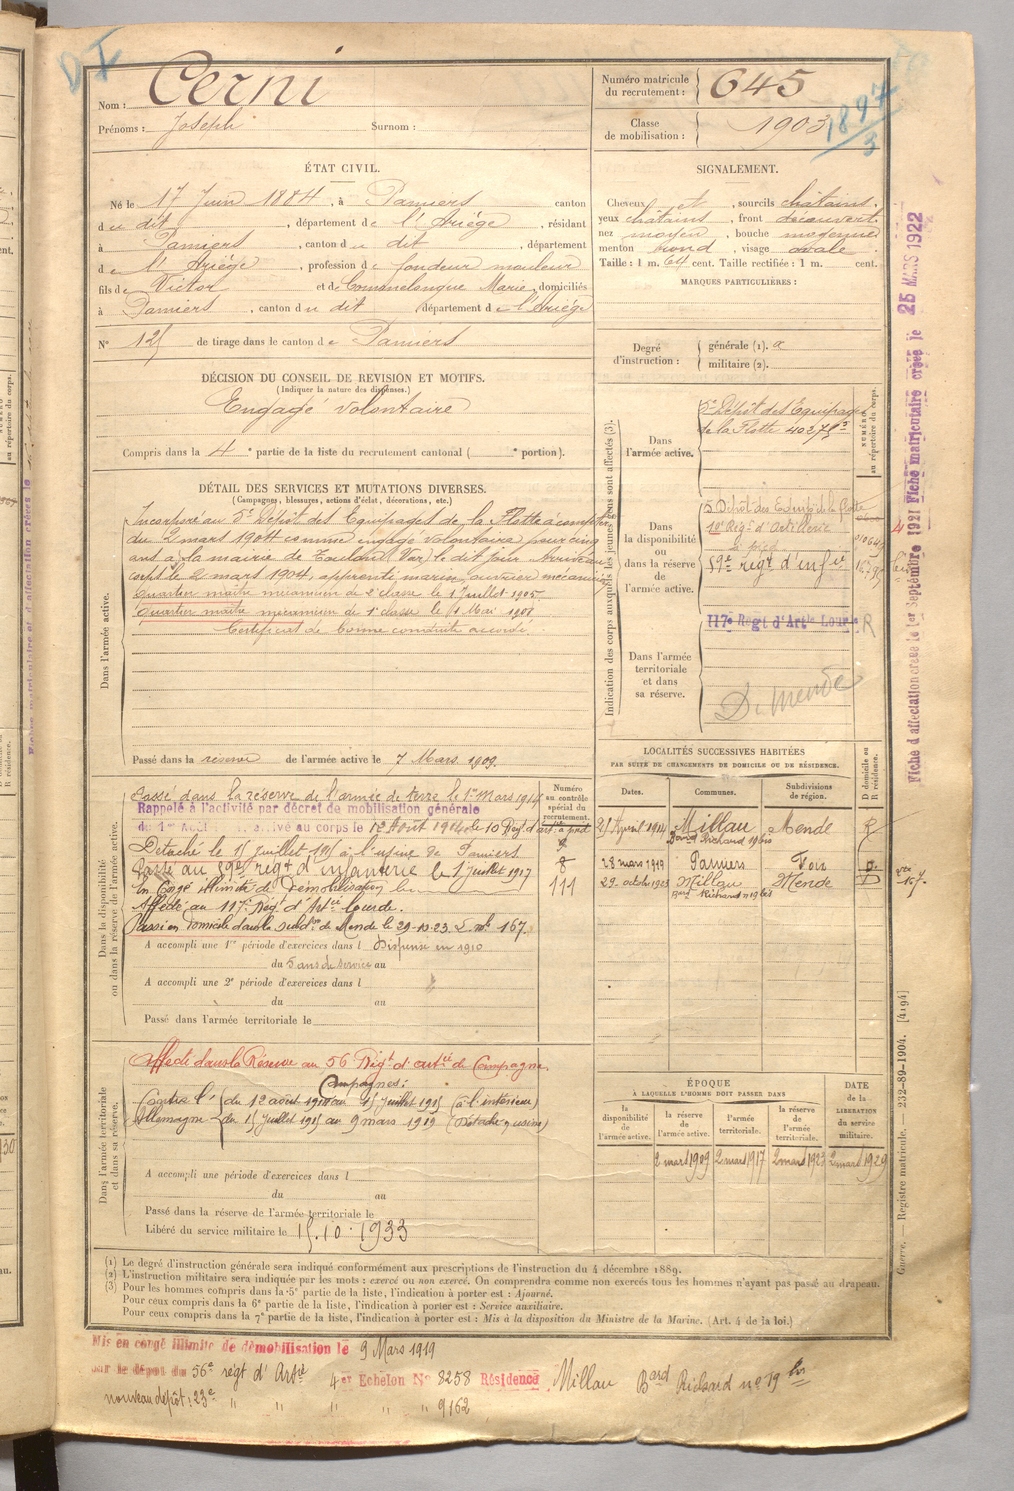 Nom : Cerni
Prénoms : Joseph Surnom :
Numéro matricule du recrutement : 645
Classe de mobilisation : 1903
1897/3
ÉTAT CIVIL.
Né le 17 Juin 1884, à Pamiers canton
du dit, département de l'Ariège, résidant
à Pamiers, canton du dit, département
de l'Ariège, profession de fondeur mouleur
fils de Victor et de Comanelongue Marie, domiciliés
à Pamiers, canton du dit, département de l'Ariège
N° 125 de tirage dans le canton de Pamiers
SIGNALEMENT.
Cheveux et, sourcils châtains.
yeux châtains, front découvert
nez moyen, bouche moyenne
menton rond, visage ovale
Taille : 1 m. 64 cent. Taille rectifiée : 1 m. cent.
MARQUES PARTICULIÈRES :
Degré d'instruction :
générale (1). 2
militaire (2).
DÉCISION DU CONSEIL DE REVISION ET MOTIFS.
(Indiquer la nature des dispenses.)
Engagé volontaire
Compris dans la 4e partie de la liste du recrutement cantonal ( e portion).
DÉTAIL DES SERVICES ET MUTATIONS DIVERSES.
(Campagnes, blessures, actions d'éclat, décorations, etc.)
Dans l'armée active.
Incorporé au 5e Dépôt des Equipages de la Flotte à compter
du 2 mars 1904 comme engagé volontaire pour cinq
ans à la mairie de Toulon (Var) le dit jour. Arrivé au
corps le 2 mars 1904, apprenti marin, ouvrier mécanicien
Quartier maître mécanicien de 2e classe le 1er Juillet 1905
Quartier maître mécanicien de 1e classe le 1er Mai 1908
Certificat de bonne conduite accordé
Passé dans la réserve de l'armée active le 7 Mars 1909.
Indication des corps auxquels les jeunes gens sont affectés (3).
NUMÉRO au répertoire du corps.
Dans l'armée active.
5e Dépôt des Equipages
de la Flotte 40275
Dans la disponibilité ou dans la réserve de l'armée active.
5 Dépôt des Equip. de la flotte
10e Rég. d'Artillerie
à pied
59e regt d'infie
117e Regt d'Artie Lourde
R
Dans l'armée territoriale et dans sa réserve.
D. Mende
LOCALITÉS SUCCESSIVES HABITÉES
PAR SUITE DE CHANGEMENTS DE DOMICILE OU DE RÉSIDENCE.
Dates. Communes. Subdivisions de région. D domicile ou R résidence.
21 Avril 1914 Millau Mende R
Bard Richard 19 bis
28 mars 1919 Pamiers Foix D
29 octobre 1923 Millau Mende D
Bard Richard n 19 bis
Dans la disponibilité ou dans la réserve de l'armée active.
Numéro au contrôle spécial du recrutement.
9
8
111
Passé dans la réserve de l'armée de terre le 1er Mars 1914
Rappelé à l'activité par décret de mobilisation générale
du 1er Août, arrivé au corps le 12 Août 1914 de 10 Régt d'art. à pied
Détaché le 15 Juillet 1915 à l'usine de Pamiers
Passé au 59e régt d'infanterie le 1er Juillet 1917
En Congé illimité de Démobilisation le
Affecté au 117e Rég. d'Artie lourde.
Passé en domicile dans la subdon de Mende le 29-10-23 L. mle 167.
A accompli une 1re période d'exercices dans l Dispensé en 1910
du 5 ans de service au
A accompli une 2e période d'exercices dans l
du au
Passé dans l'armée territoriale le
Dans l'armée territoriale et dans sa réserve.
Affecté dans la Réserve au 56 Régt d'artie de Campagne.
Campagnes :
Contre l'Allemagne
du 12 août 1914 au 15 Juillet 1915 (à l'intérieur)
du 15 Juillet 1915 au 9 mars 1919 (Détaché usine)
A accompli une période d'exercices dans l
du au
Passé dans la réserve de l'armée territoriale le
Libéré du service militaire le 15.10.1933
ÉPOQUE
À LAQUELLE L'HOMME DOIT PASSER DANS
la disponibilité de l'armée active. la réserve de l'armée active. l'armée territoriale. la réserve de l'armée territoriale.
DATE de la LIBÉRATION du service militaire.
2 mars 1909 2 mars 1917 2 mars 1923 2 mars 1929
(1) Le degré d'instruction générale sera indiqué conformément aux prescriptions de l'instruction du 4 décembre 1889.
(2) L'instruction militaire sera indiquée par les mots : exercé ou non exercé. On comprendra comme non exercés tous les hommes n'ayant pas passé au drapeau.
(3) Pour les hommes compris dans la 5e partie de la liste, l'indication à porter est : Ajourné.
Pour ceux compris dans la 6e partie de la liste, l'indication à porter est : Service auxiliaire.
Pour ceux compris dans la 7e partie de la liste, l'indication à porter est : Mis à la disposition du Ministre de la Marine. (Art. 4 de la loi.)
Mis en congé illimité de démobilisation le 9 Mars 1919
par le dépôt du 56e régt d'Artie 4er Echelon N° 8258 Résidence Millau Bard Richard n° 19 bis
nouveau dépôt : 23e " " " " 9162
Fiche d'affectation créée le 1er Septembre 1921 Fiche matriculaire créée le 25 MARS 1922
Guerre. — Registre matricule. — 232-89-1904. [4194]